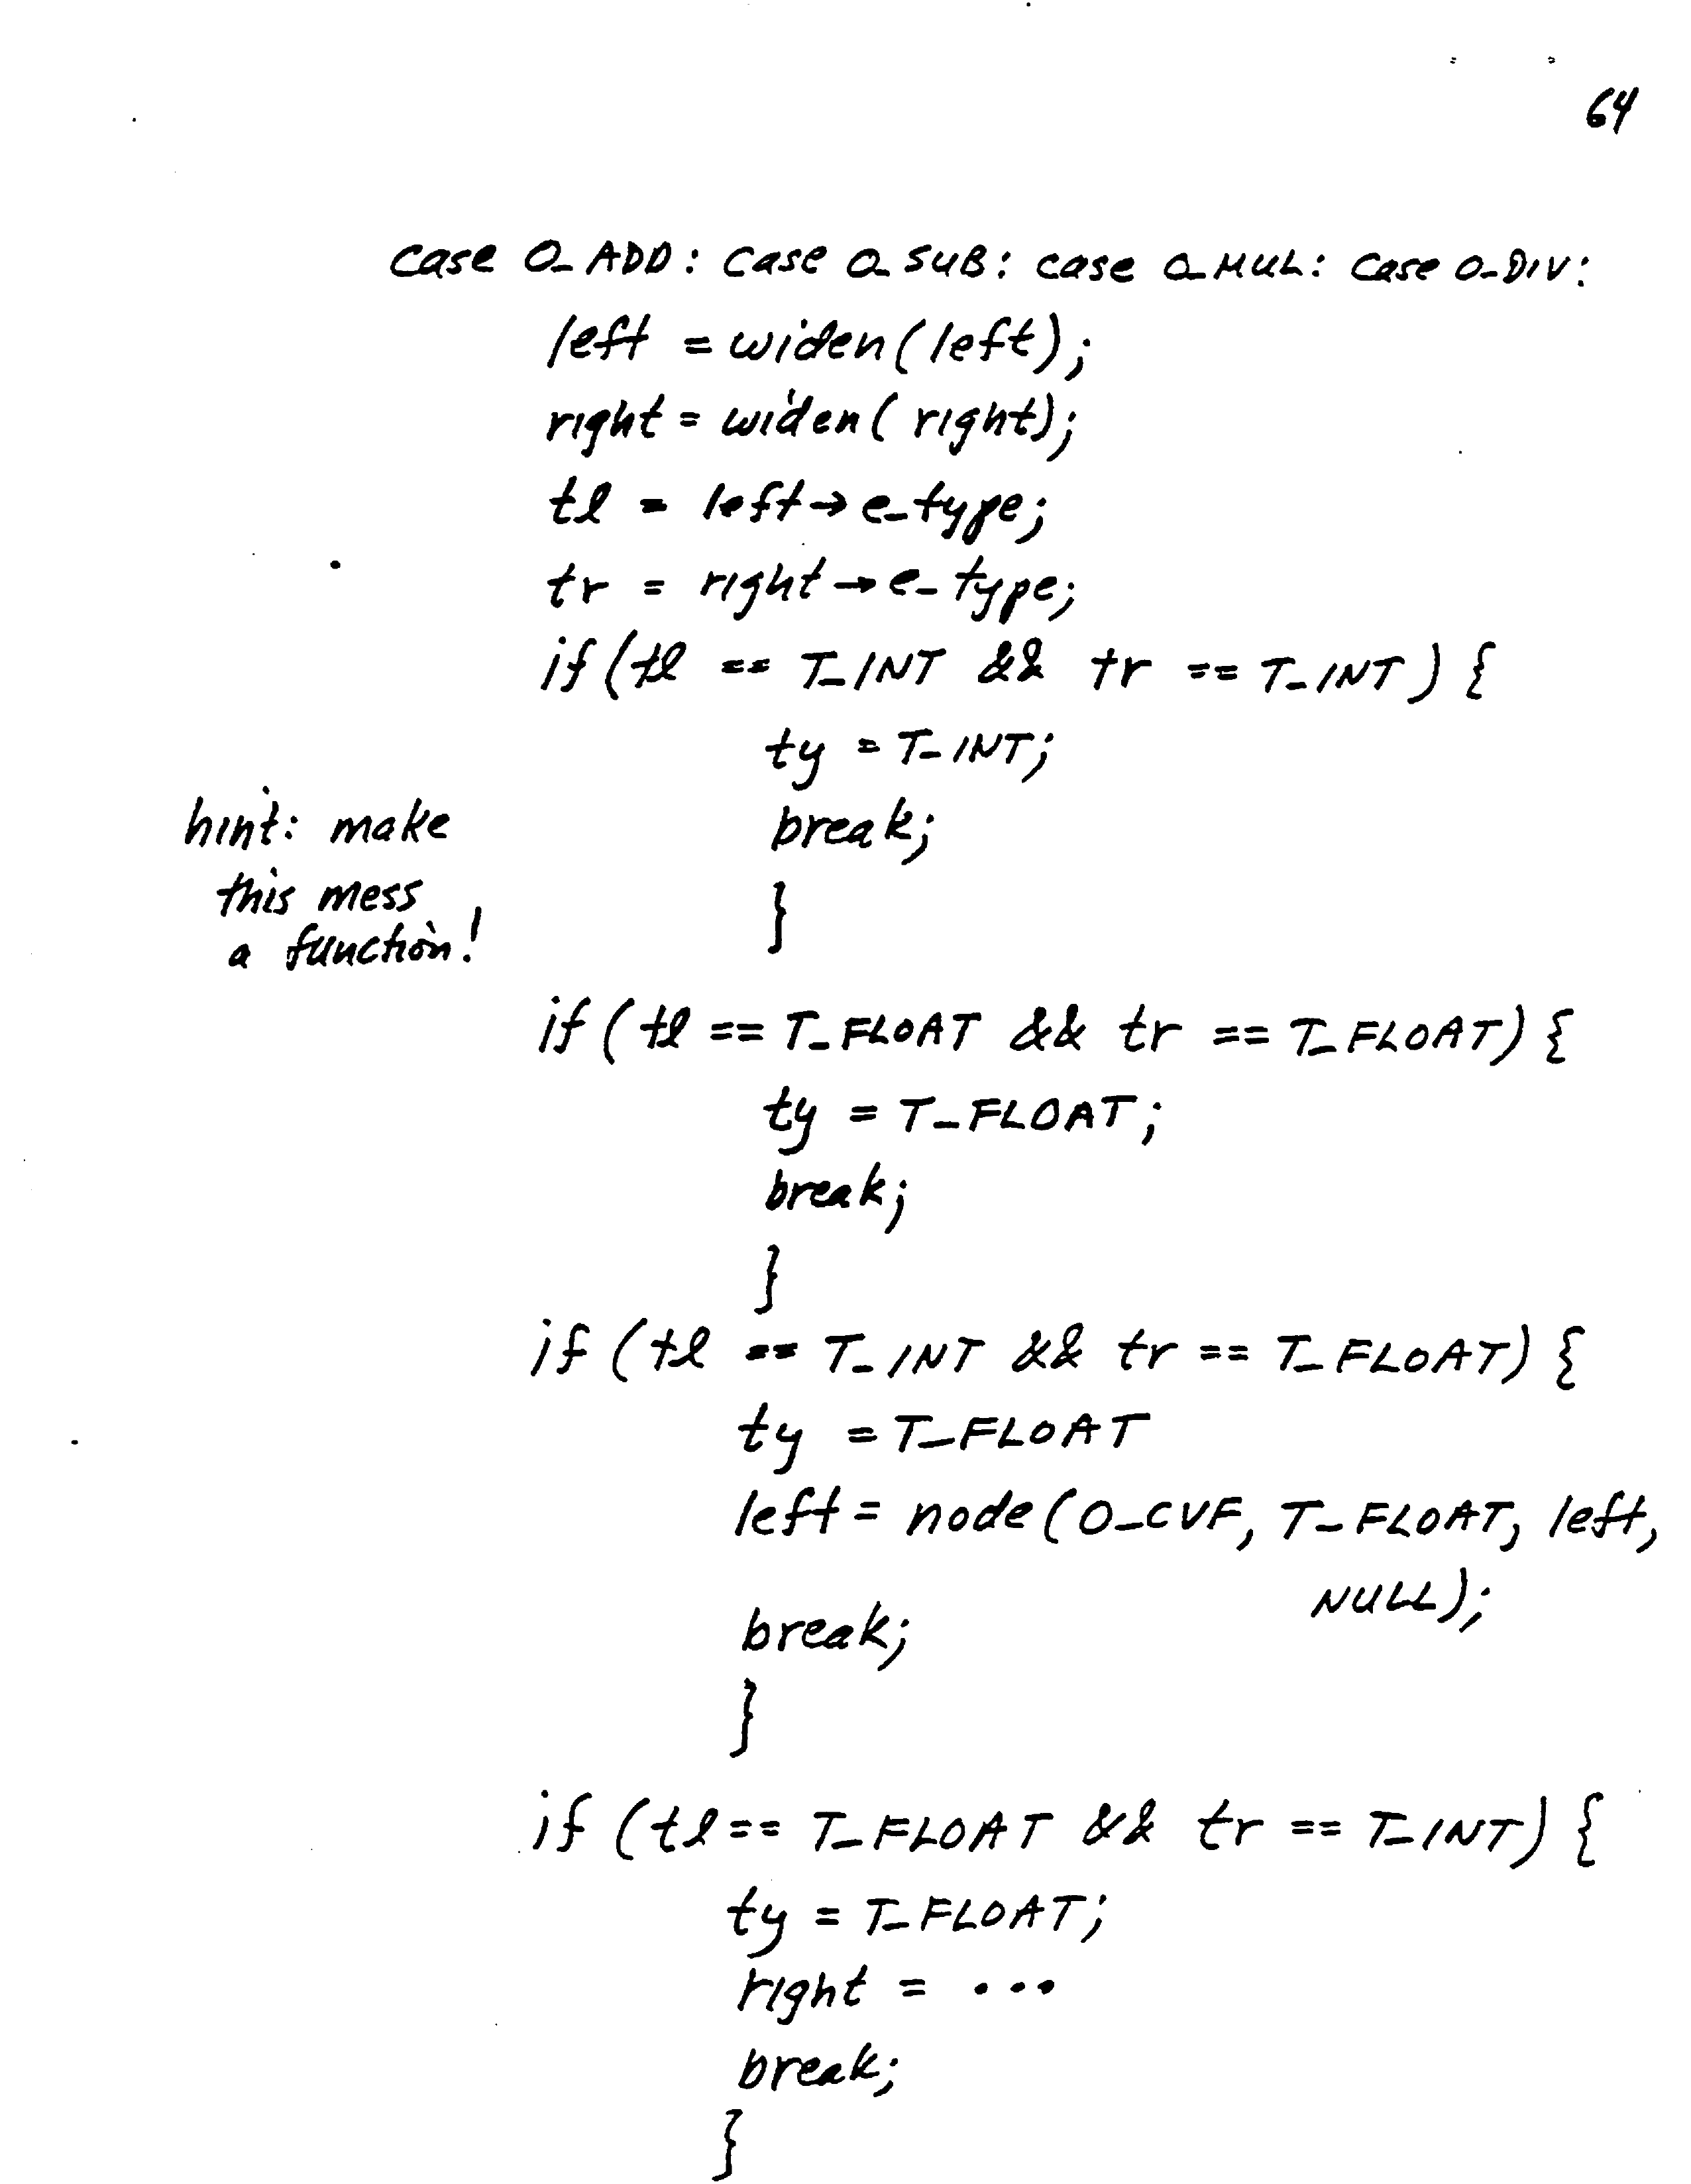 64
case O_ADD: case O_SUB: case O_MUL: case O_DIV:
left = widen(left);
right = widen(right);
tl = left→e_type;
tr = right→e_type;
if (tl == T_INT && tr == T_INT) {
ty = T_INT;
hint: make
this mess
a function!
break;
}
if (tl == T_FLOAT && tr == T_FLOAT) {
ty = T_FLOAT;
break;
}
if (tl == T_INT && tr == T_FLOAT) {
ty = T_FLOAT
left = node(O_CVF, T_FLOAT, left,
NULL);
break;
}
if (tl == T_FLOAT && tr == T_INT) {
ty = T_FLOAT;
right = ...
break;
}